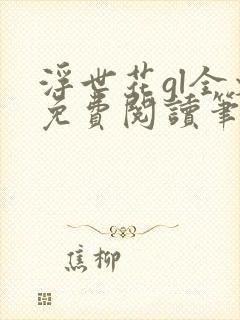 浮世花gl全文
免費閱讀筆
焦柳